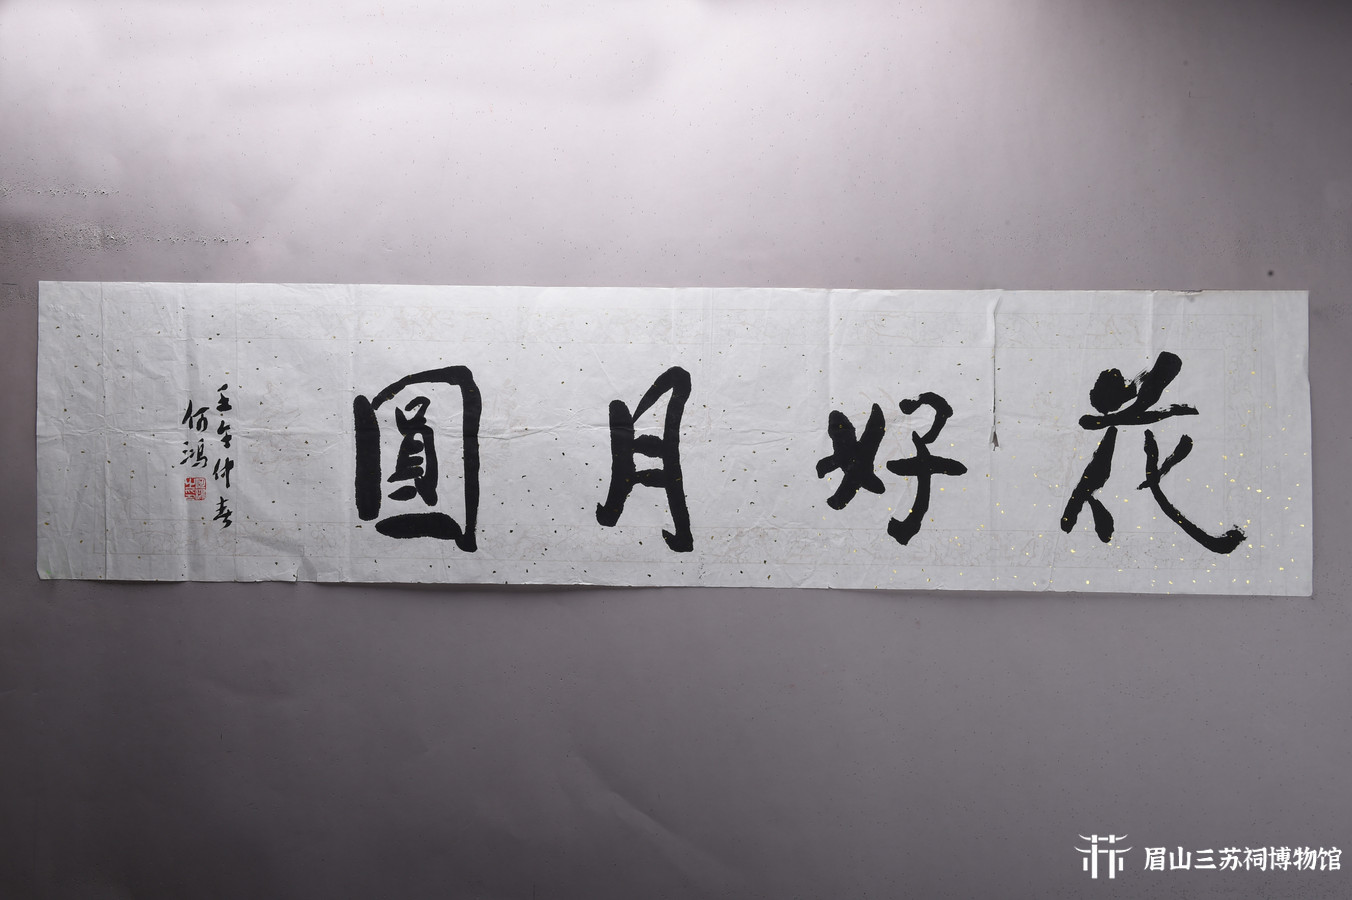 花好月圓
壬午仲春
何鴻
眉山三苏祠博物馆